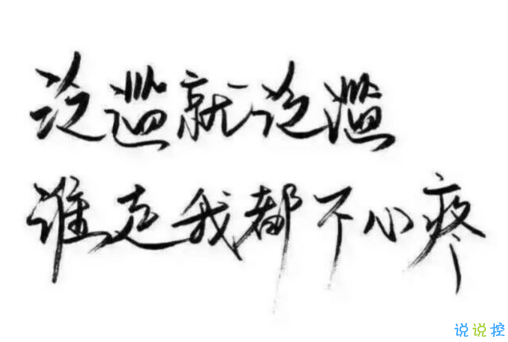 泛滥就泛滥
谁走我都不心疼
说说控